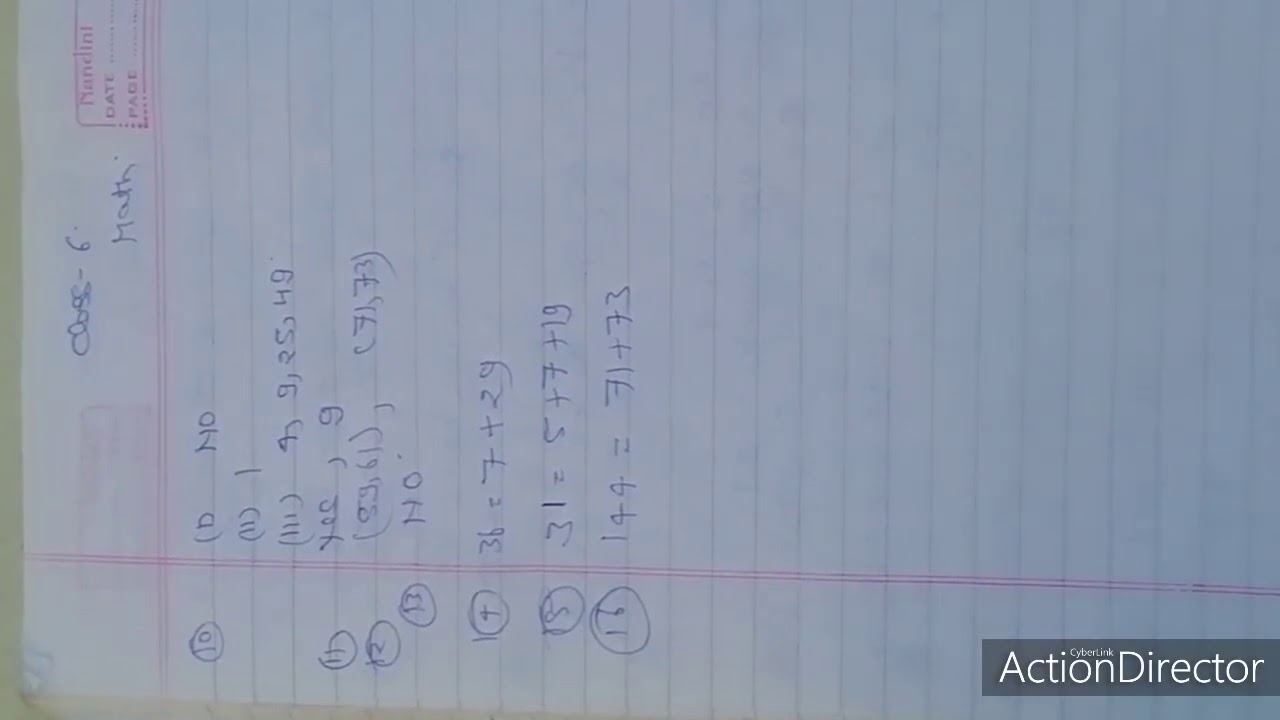 Class - 6.
Nandini
DATE
PAGE
Math.
10 (I) NO
(II) 1
(III) 4, 9, 25, 49
11 Yes, 9
12 (59, 61), (71, 73)
13 NO.
14 36 = 7 + 29
15 31 = 5 + 7 + 19
16 144 = 71 + 73
CyberLink
ActionDirector